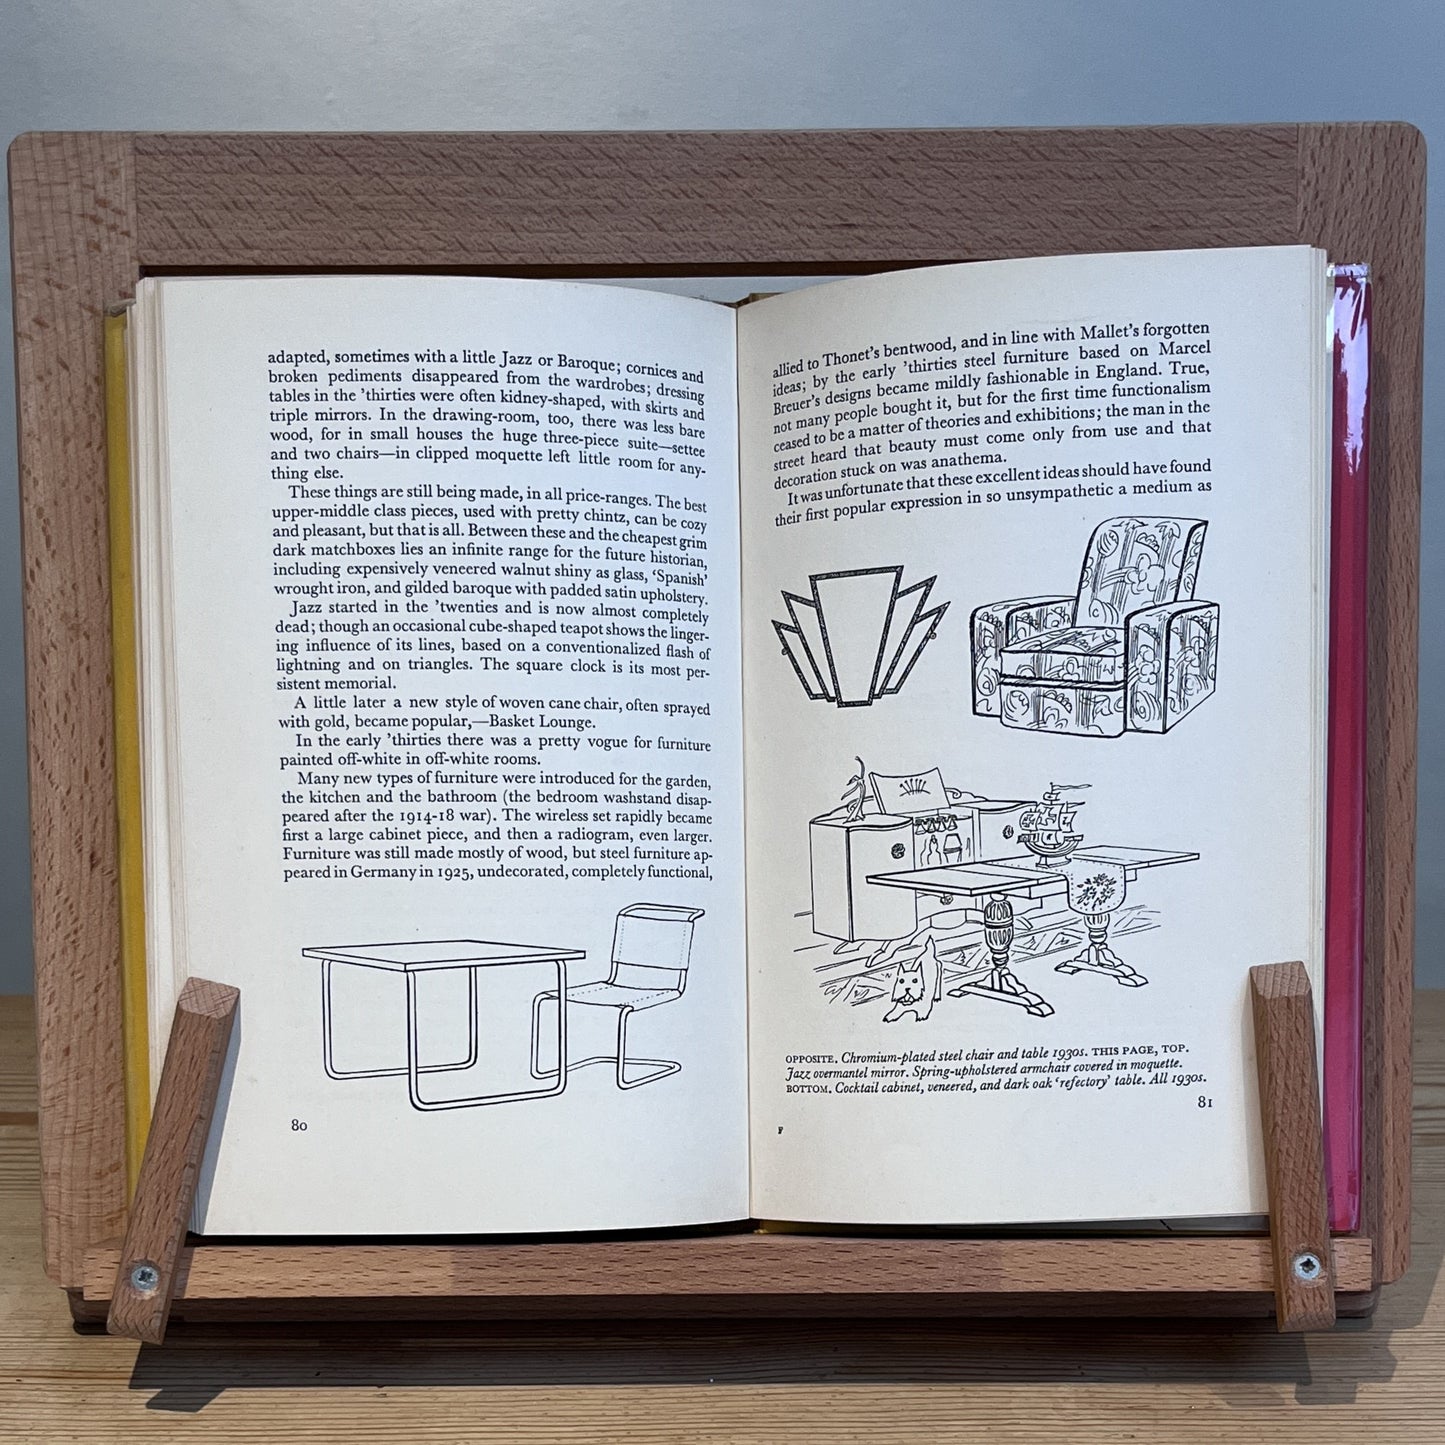 adapted, sometimes with a little Jazz or Baroque; cornices and
broken pediments disappeared from the wardrobes; dressing
tables in the 'thirties were often kidney-shaped, with skirts and
triple mirrors. In the drawing-room, too, there was less bare
wood, for in small houses the huge three-piece suite—settee
and two chairs—in clipped moquette left little room for any-
thing else.
These things are still being made, in all price-ranges. The best
upper-middle class pieces, used with pretty chintz, can be cozy
and pleasant, but that is all. Between these and the cheapest grim
dark matchboxes lies an infinite range for the future historian,
including expensively veneered walnut shiny as glass, 'Spanish'
wrought iron, and gilded baroque with padded satin upholstery.
Jazz started in the 'twenties and is now almost completely
dead; though an occasional cube-shaped teapot shows the linger-
ing influence of its lines, based on a conventionalized flash of
lightning and on triangles. The square clock is its most per-
sistent memorial.
A little later a new style of woven cane chair, often sprayed
with gold, became popular,—Basket Lounge.
In the early 'thirties there was a pretty vogue for furniture
painted off-white in off-white rooms.
Many new types of furniture were introduced for the garden,
the kitchen and the bathroom (the bedroom washstand disap-
peared after the 1914-18 war). The wireless set rapidly became
first a large cabinet piece, and then a radiogram, even larger.
Furniture was still made mostly of wood, but steel furniture ap-
peared in Germany in 1925, undecorated, completely functional,
80
allied to Thonet's bentwood, and in line with Mallet's forgotten
ideas; by the early 'thirties steel furniture based on Marcel
Breuer's designs became mildly fashionable in England. True,
not many people bought it, but for the first time functionalism
ceased to be a matter of theories and exhibitions; the man in the
street heard that beauty must come only from use and that
decoration stuck on was anathema.
It was unfortunate that these excellent ideas should have found
their first popular expression in so unsympathetic a medium as
OPPOSITE. Chromium-plated steel chair and table 1930s. THIS PAGE, TOP.
Jazz overmantel mirror. Spring-upholstered armchair covered in moquette.
BOTTOM. Cocktail cabinet, veneered, and dark oak 'refectory' table. All 1930s.
81
F